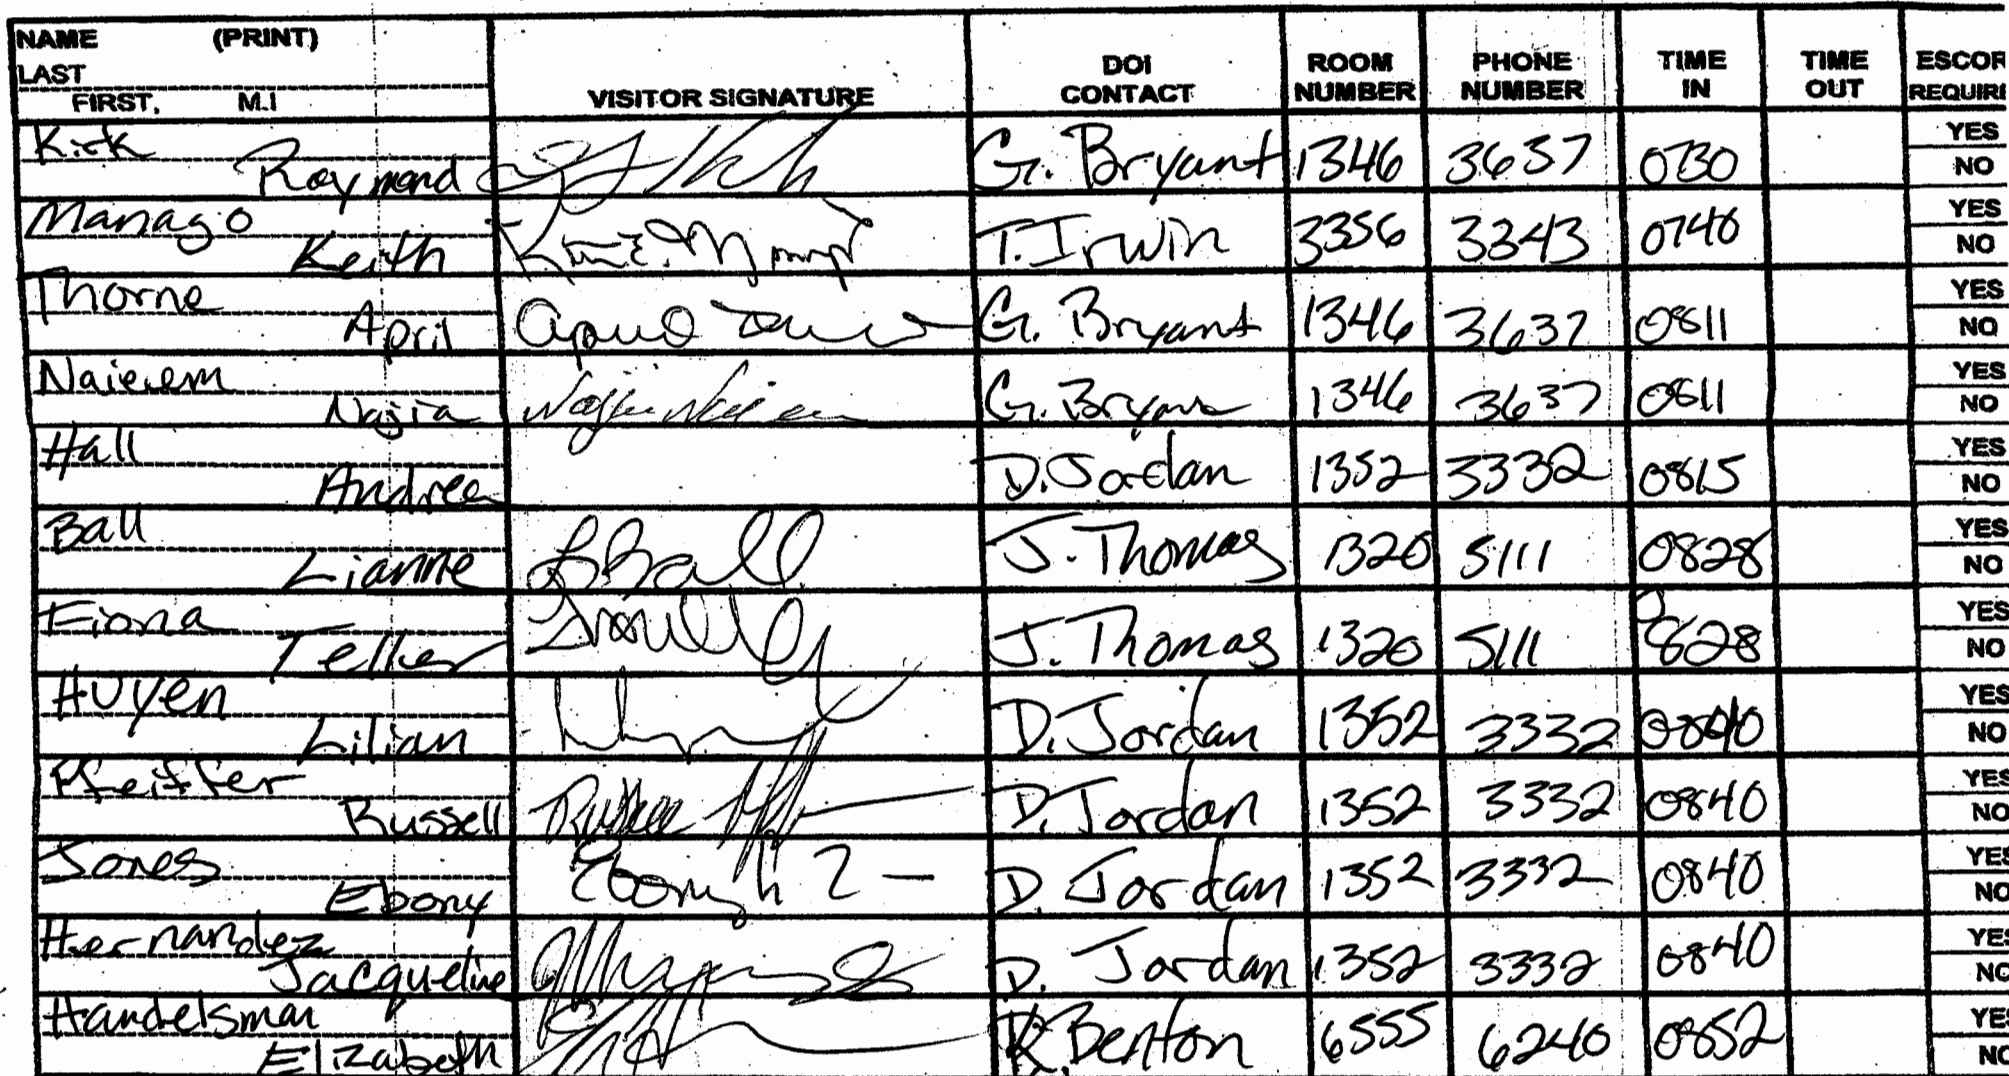 NAME (PRINT)
LAST
FIRST, M.I
VISITOR SIGNATURE
DOI CONTACT
ROOM NUMBER
PHONE NUMBER
TIME IN
TIME OUT
ESCOR
REQUIRE
Kirk
Raymond G. Bryant 1346 3637 0730 YES NO
Manago
Keith T. Irwin 3356 3343 0740 YES NO
Thorne
April G. Bryant 1346 3637 0811 YES NO
Naieem
Najia G. Bryant 1346 3637 0811 YES NO
Hall
Andrea D. Jordan 1352 3332 0815 YES NO
Ball
Lianne LBall J. Thomas 1320 5111 0828 YES NO
Fiona
Teller J. Thomas 1320 5111 0828 YES NO
Huyen
Lilian D. Jordan 1352 3332 0840 YES NO
Pfeiffer
Russell D. Jordan 1352 3332 0840 YES NO
Jones
Ebony D. Jordan 1352 3332 0840 YES NO
Hernandez
Jacqueline D. Jordan 1352 3332 0840 YES NO
Handelsman
Elizabeth K. Benton 6555 6240 0852 YES NO